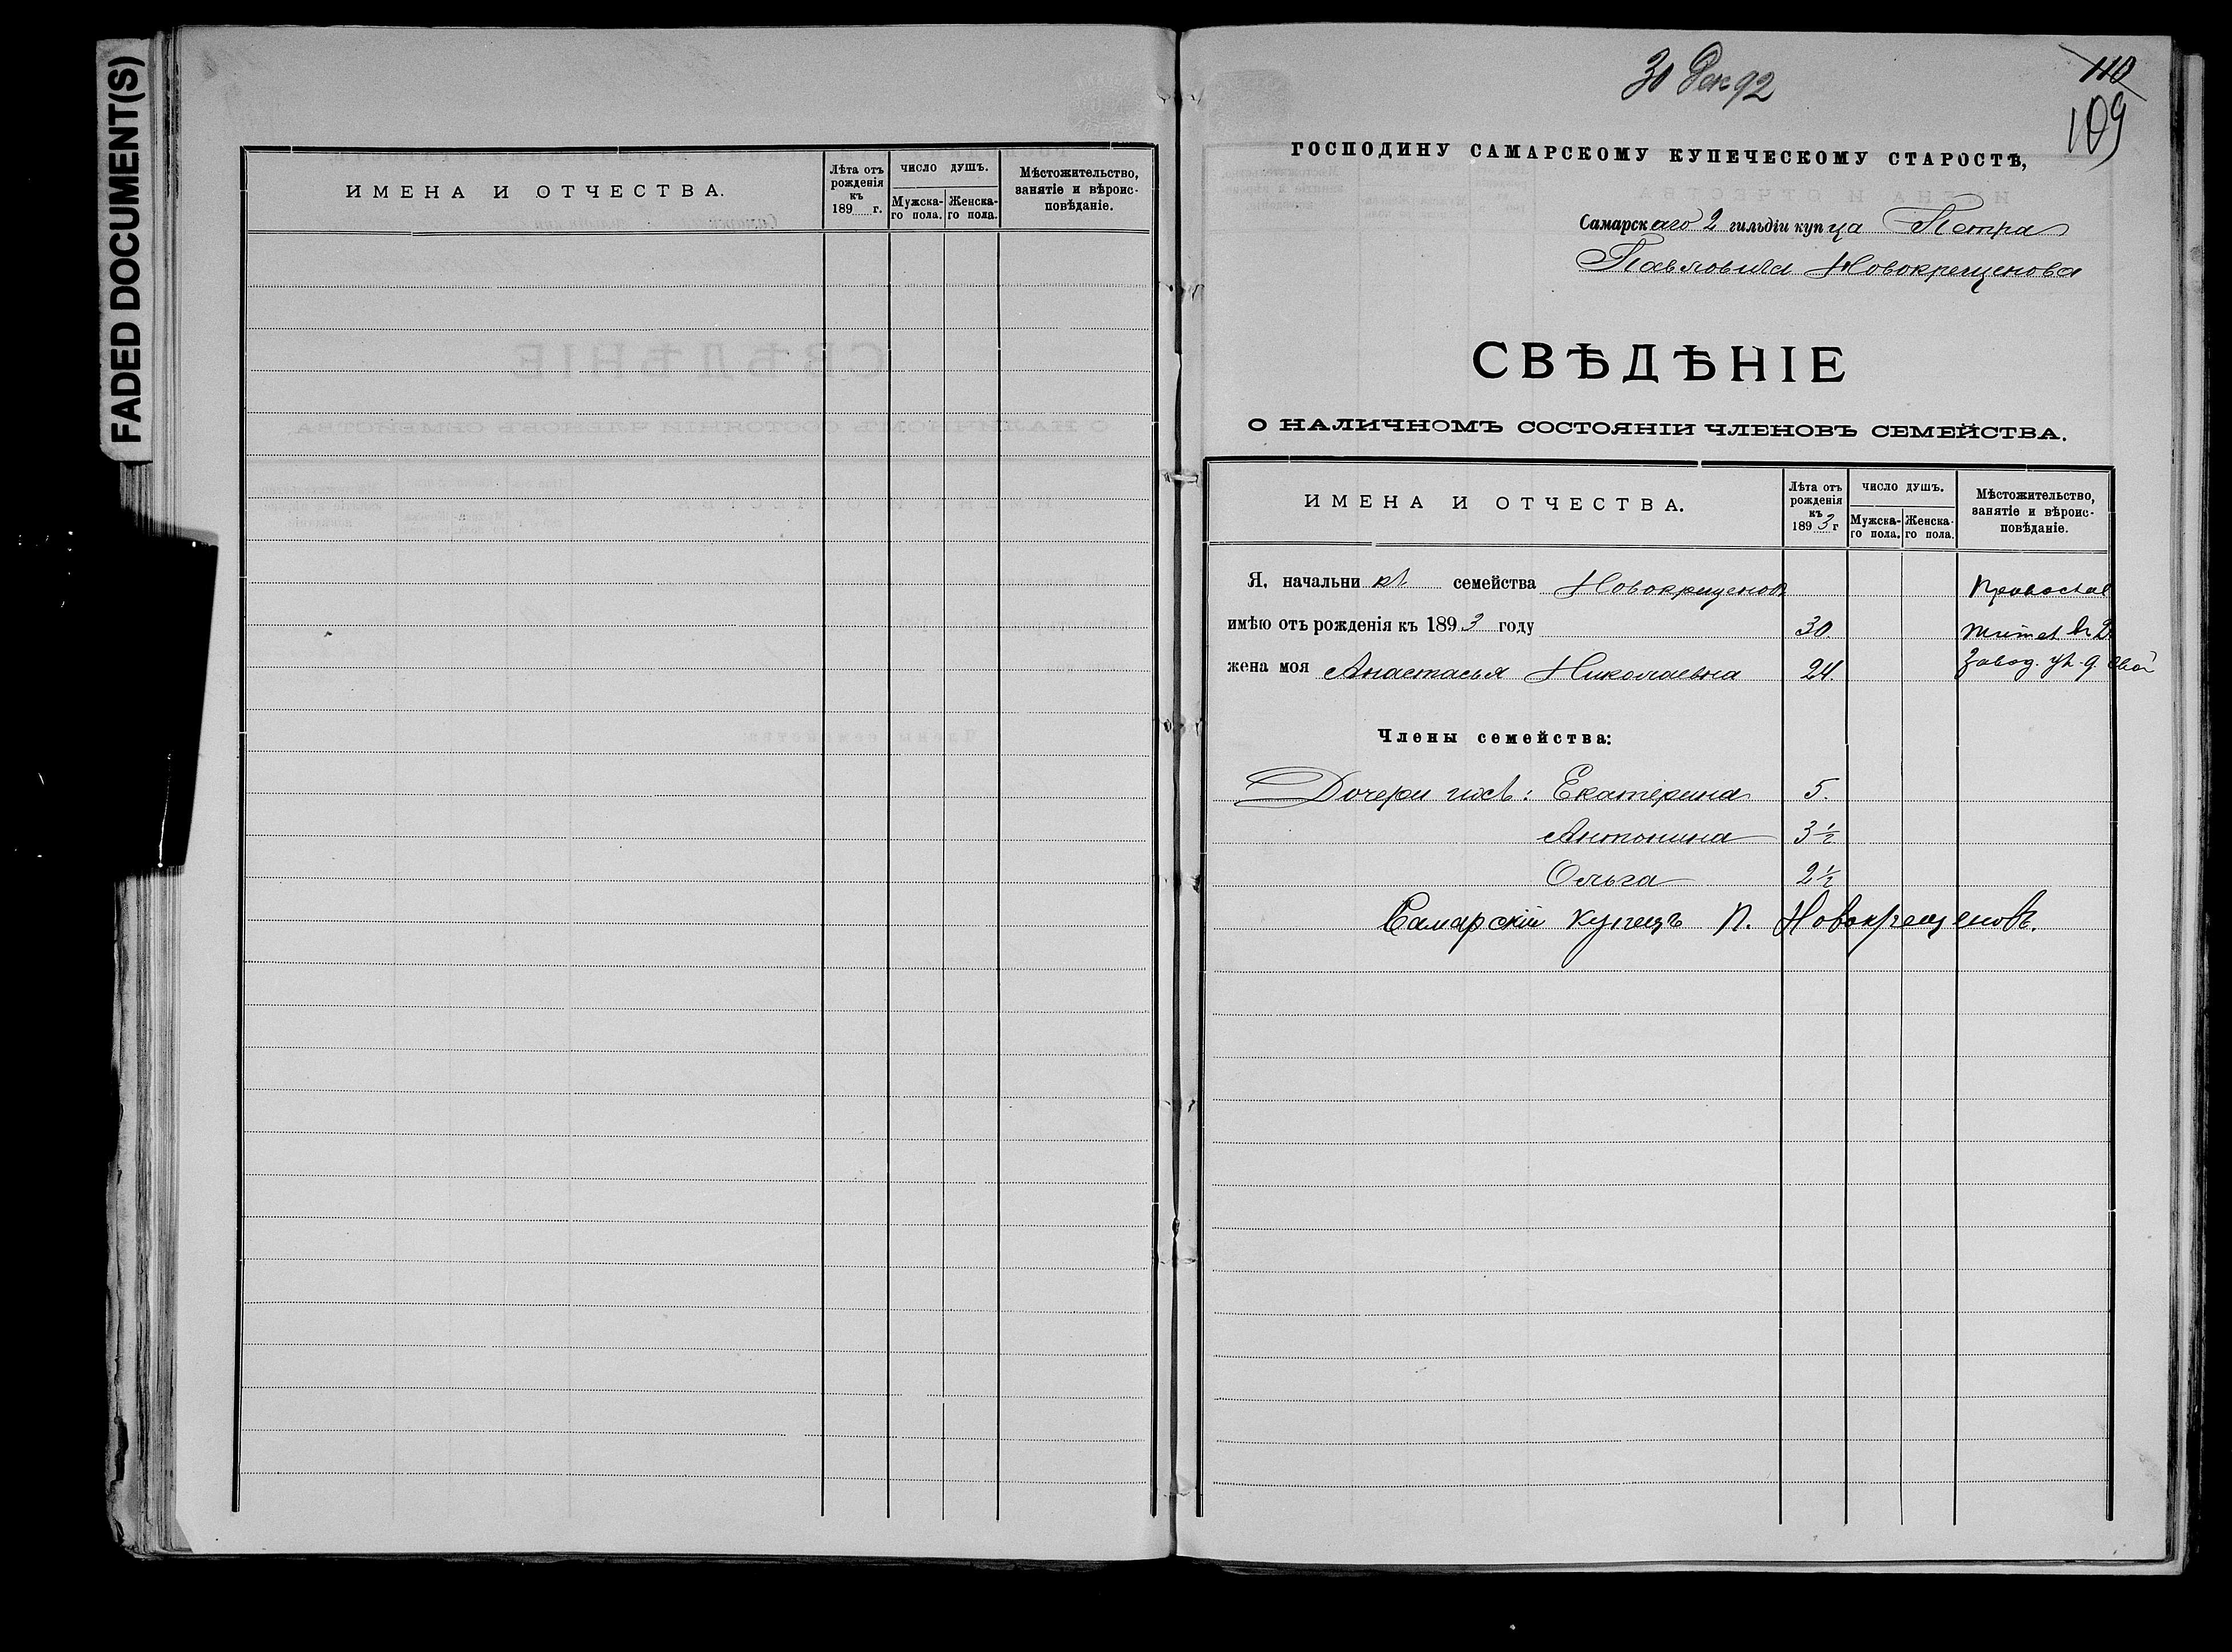 FADED DOCUMENT(S)
ИМЕНА И ОТЧЕСТВА.
Лѣта отъ
рожденія
къ
189 г.
ЧИСЛО ДУШЪ.
Мужска-
го пола.
Женска-
го пола.
Мѣстожительство,
занятіе и вѣроис-
повѣданіе.
30 Дек 92
110
109
ГОСПОДИНУ САМАРСКОМУ КУПЕЧЕСКОМУ СТАРОСТѢ,
Самарскаго 2 гильдіи купца Петра
Павловича Новокрещенова
СВѢДѢНІЕ
О НАЛИЧНОМЪ СОСТОЯНІИ ЧЛЕНОВЪ СЕМЕЙСТВА.
ИМЕНА И ОТЧЕСТВА.
Лѣта отъ
рожденія
къ
1893 г
ЧИСЛО ДУШЪ.
Мужска-
го пола.
Женска-
го пола.
Мѣстожительство,
занятіе и вѣроис-
повѣданіе.
Я, начальникъ семейства Новокрещеновъ Православ
имѣю отъ рожденія къ 1893 году 30 жител въ 2
жена моя Анастасья Николаевна 24. завод. д. свой
Члены семейства:
Дочери ихъ: Екатерина 5.
Антонина 3 1/2
Ольга 2 1/2
Самарскій купецъ П. Новокрещеновъ.